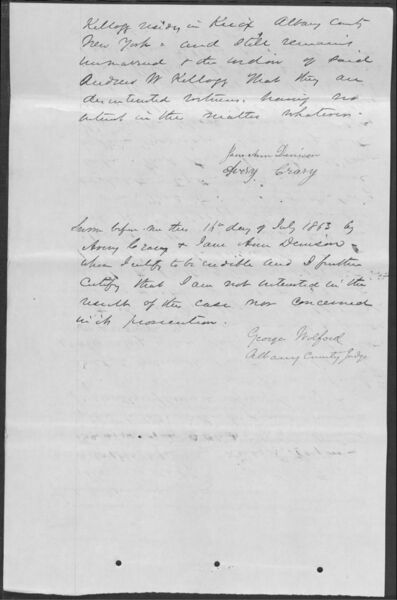 Kellogg resides in Knox Albany County
New York & and still remains
unmarried & the widow of said
Andrew W Kellogg That they are
disinterested witness, having no
interest in this matter whatever.
Jane Ann Denison
Avery Crary
Sworn before me this 16th day of July 1863 by
Avery Crary & Jane Ann Denison
whom I certify to be credible and I further
certify that I am not interested in the
result of this case nor concerned
in its prosecution.
George Wolford
Albany County Judge